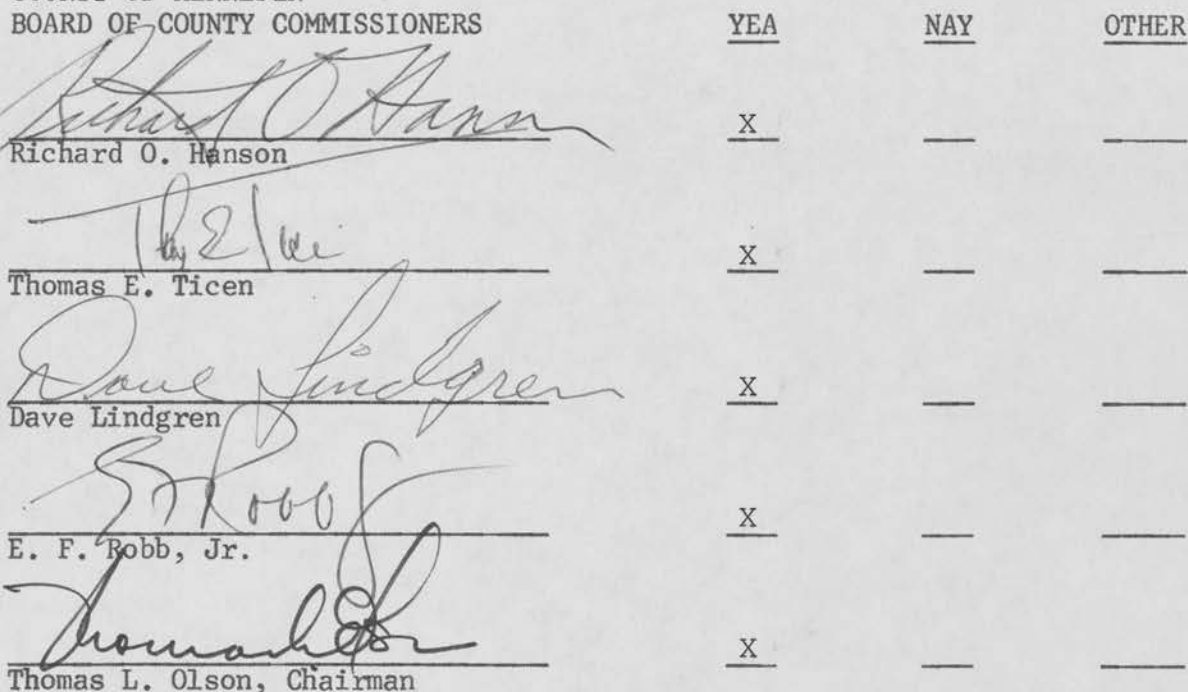 BOARD OF COUNTY COMMISSIONERS YEA NAY OTHER
Richard O Hanson
X
Richard O. Hanson
X
Thomas E. Ticen
Dave Lindgren
X
Dave Lindgren
E F Robb Jr
X
E. F. Robb, Jr.
X
Thomas L. Olson, Chairman